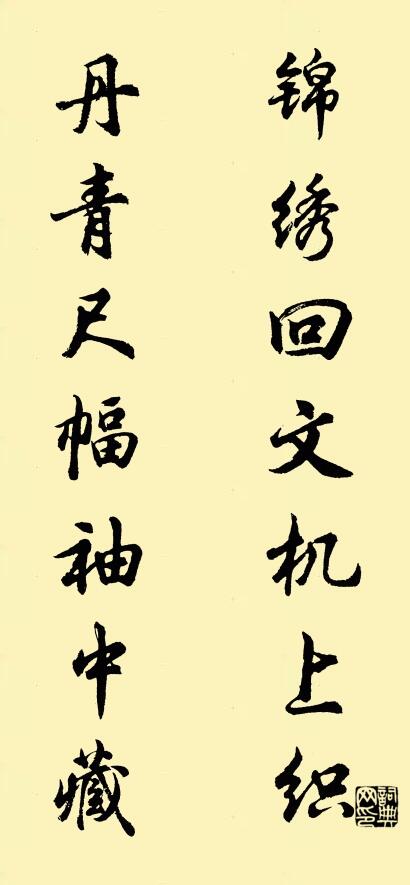 锦绣回文机上织
丹青尺幅袖中藏
词典网印